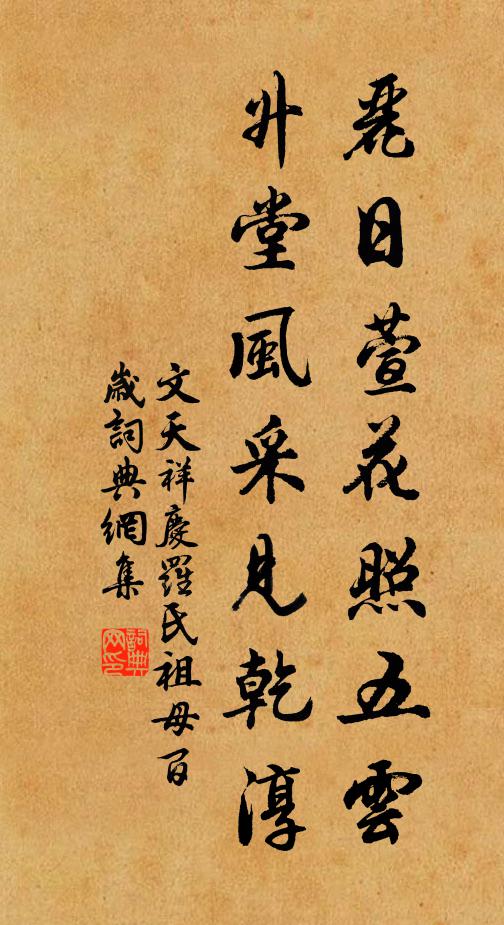 麗日萱花照五雲
升堂風采見乾淳
文天祥慶羅氏祖母百
歲詞典網集
詞典
网印